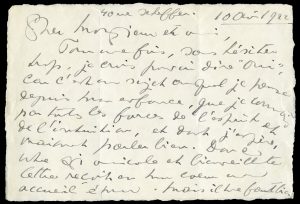 10 Août 1922
Cher Monsieur et ami,
Pour une fois, sans hésiter
trop, je crois pouvoir dire "oui"
car c'est un sujet auquel je pense
depuis mon enfance, que je
par toutes les forces de l'esprit et
de l'intuition, et dont j'espère
maintenant parler bien. Donc
votre si amicale et bienveillante
lettre reçoit en mon cœur un
accueil ému. mais il me faudra